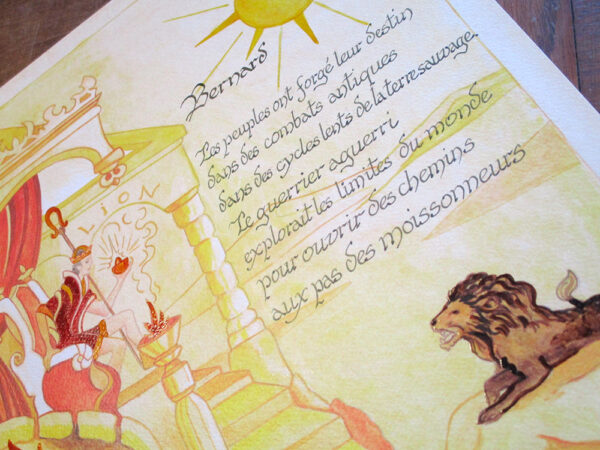 Bernard
Les peuples ont forgé leur destin
dans des combats antiques
dans des cycles lents de la terre sauvage.
Le guerrier aguerri
explorait les limites du monde
pour ouvrir des chemins
aux pas des moissonneurs
LION